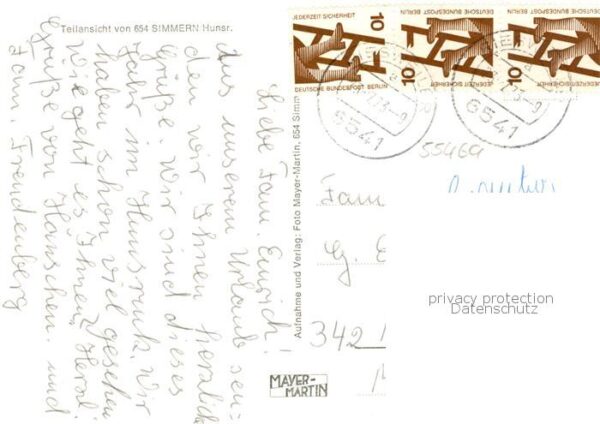 Teilansicht von 654 SIMMERN Hunsr.
Liebe Fam. Emrich!
Aus unserem Urlaub sen-
den wir Ihnen herzlich
Grüße. Wir sind dieses
Jahr im Hunsrück. Wir
haben schon viel gesehen
Wie geht es Ihnen? Herzl.
Grüße von Hänschen und
Fam. Freudenberg
Aufnahme und Verlag: Foto Mayer-Martin, 654 Simm
MAYER-
MARTIN
JEDERZEIT SICHERHEIT
10
DEUTSCHE BUNDESPOST BERLIN
DEUTSCHE BUNDESPOST BERLIN
10
JEDERZEIT SICHERHEIT
DEUTSCHE BUNDESPOST BERLIN
10
JEDERZEIT SICHERHEIT
6541
6541
55469
Fam
G. E
342
privacy protection
Datenschutz